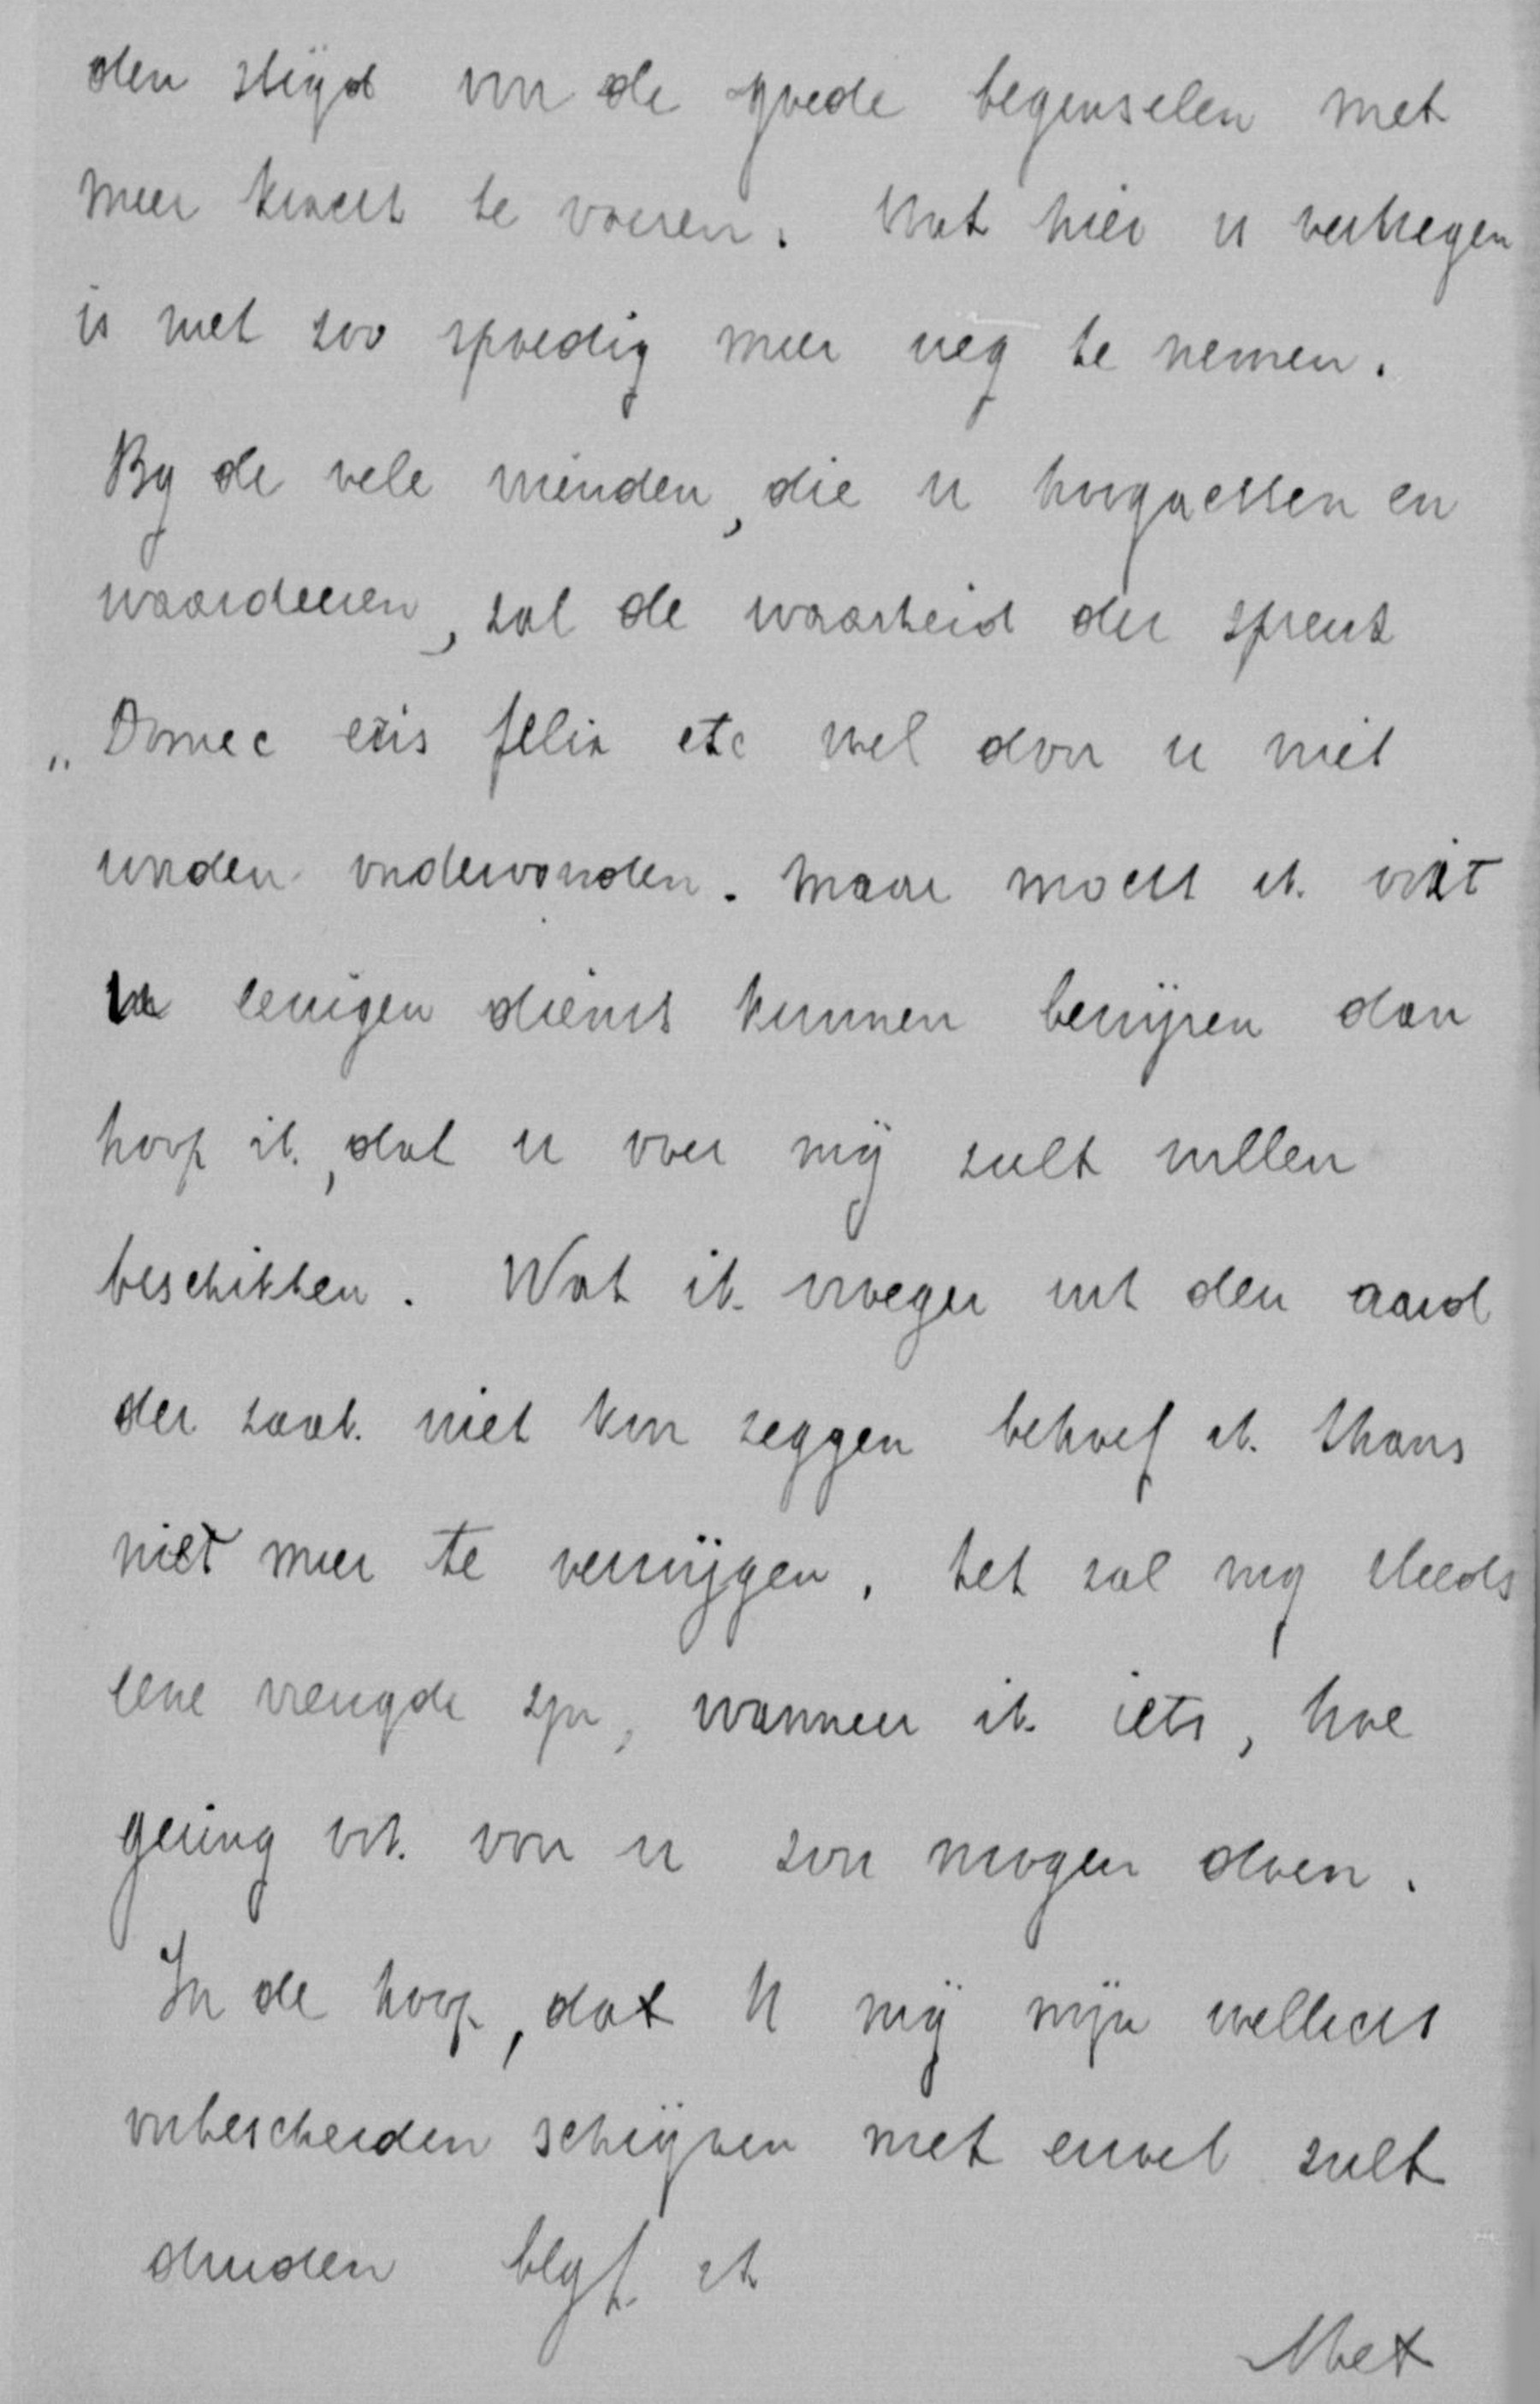 den strijd om de goede beginselen met
meer kracht te voeren. Wat hier is verkregen
is niet zoo spoedig meer weg te nemen.
By de vele vrienden, die u hoogachten en
waardeeren, zal de waarheid der spreuk
„Donec eris felix etc wel door u niet
worden ondervonden. Maar mocht ik ooit
u eenigen dienst kunnen bewijzen dan
hoop ik, dat u over mij zult willen
beschikken. Wat ik vroeger uit den aard
der zaak niet kon zeggen behoef ik thans
niet meer te verzwijgen, het zal mij steeds
eene vreugde zijn, wanneer ik iets, hoe
gering ook voor u zou mogen doen.
In de hoop, dat U mij mijn wellicht
onbescheiden schrijven niet euvel zult
duiden blijf ik
Met